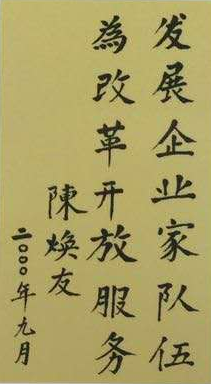 发展企业家队伍
為改革开放服务
陳焕友
二〇〇〇年九月